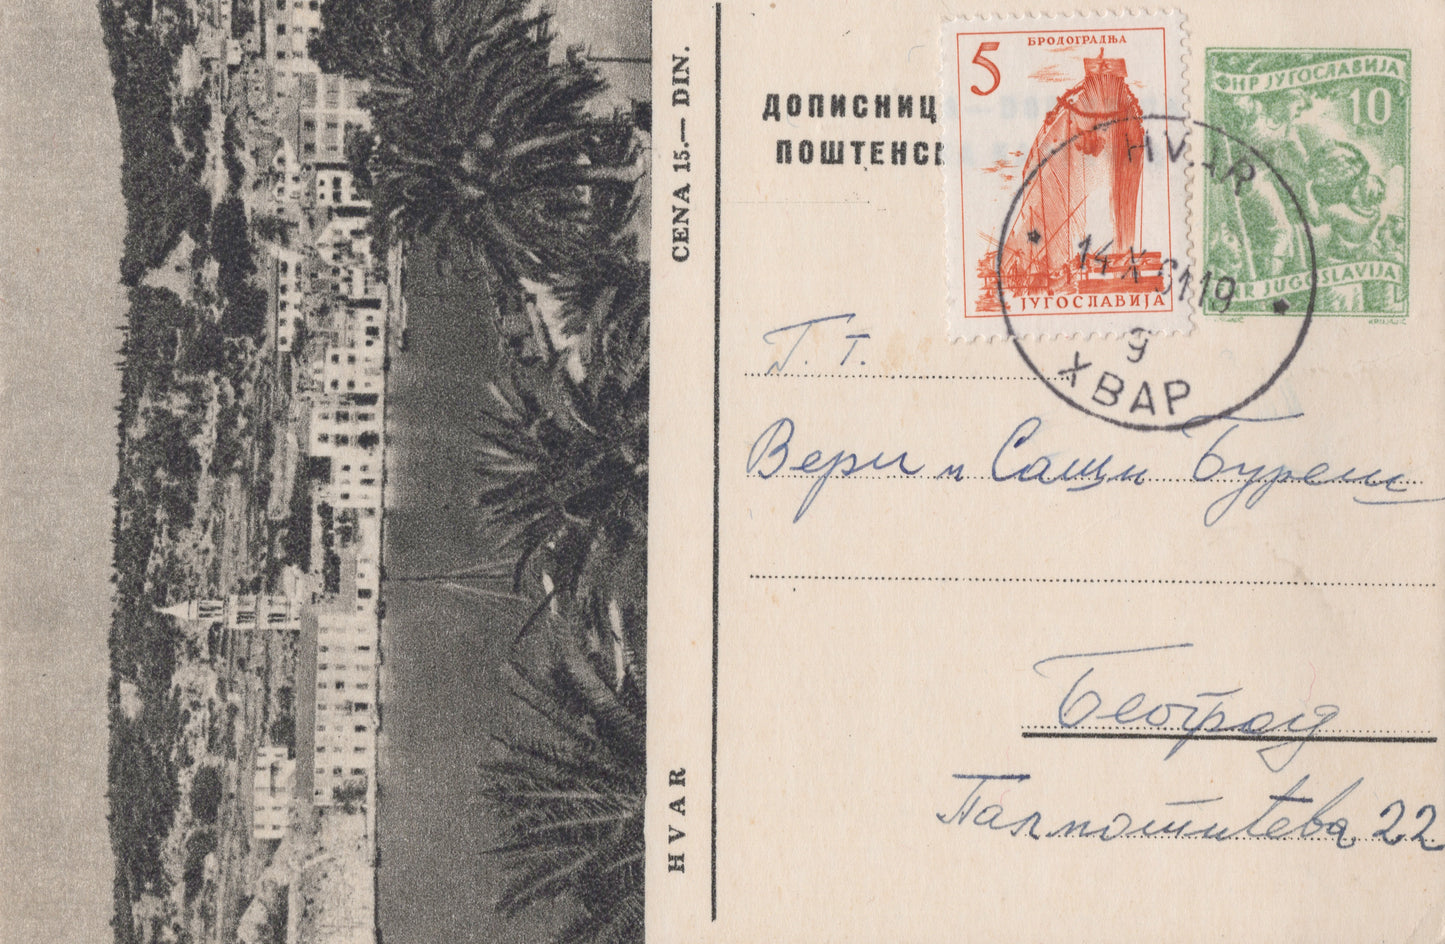 HVAR
CENA 15.— DIN.
ДОПИСНИЦ
ПОШТЕНС
5
БРОДОГРАДЊА
ЈУГОСЛАВИЈА
ФНР ЈУГОСЛАВИЈА
10
FNR JUGOSLAVIJA
HVAR
14 X 61 19
g
ХВАР
Г. г.
Вери и Саши Буреш
Београд
Палмотићева 22